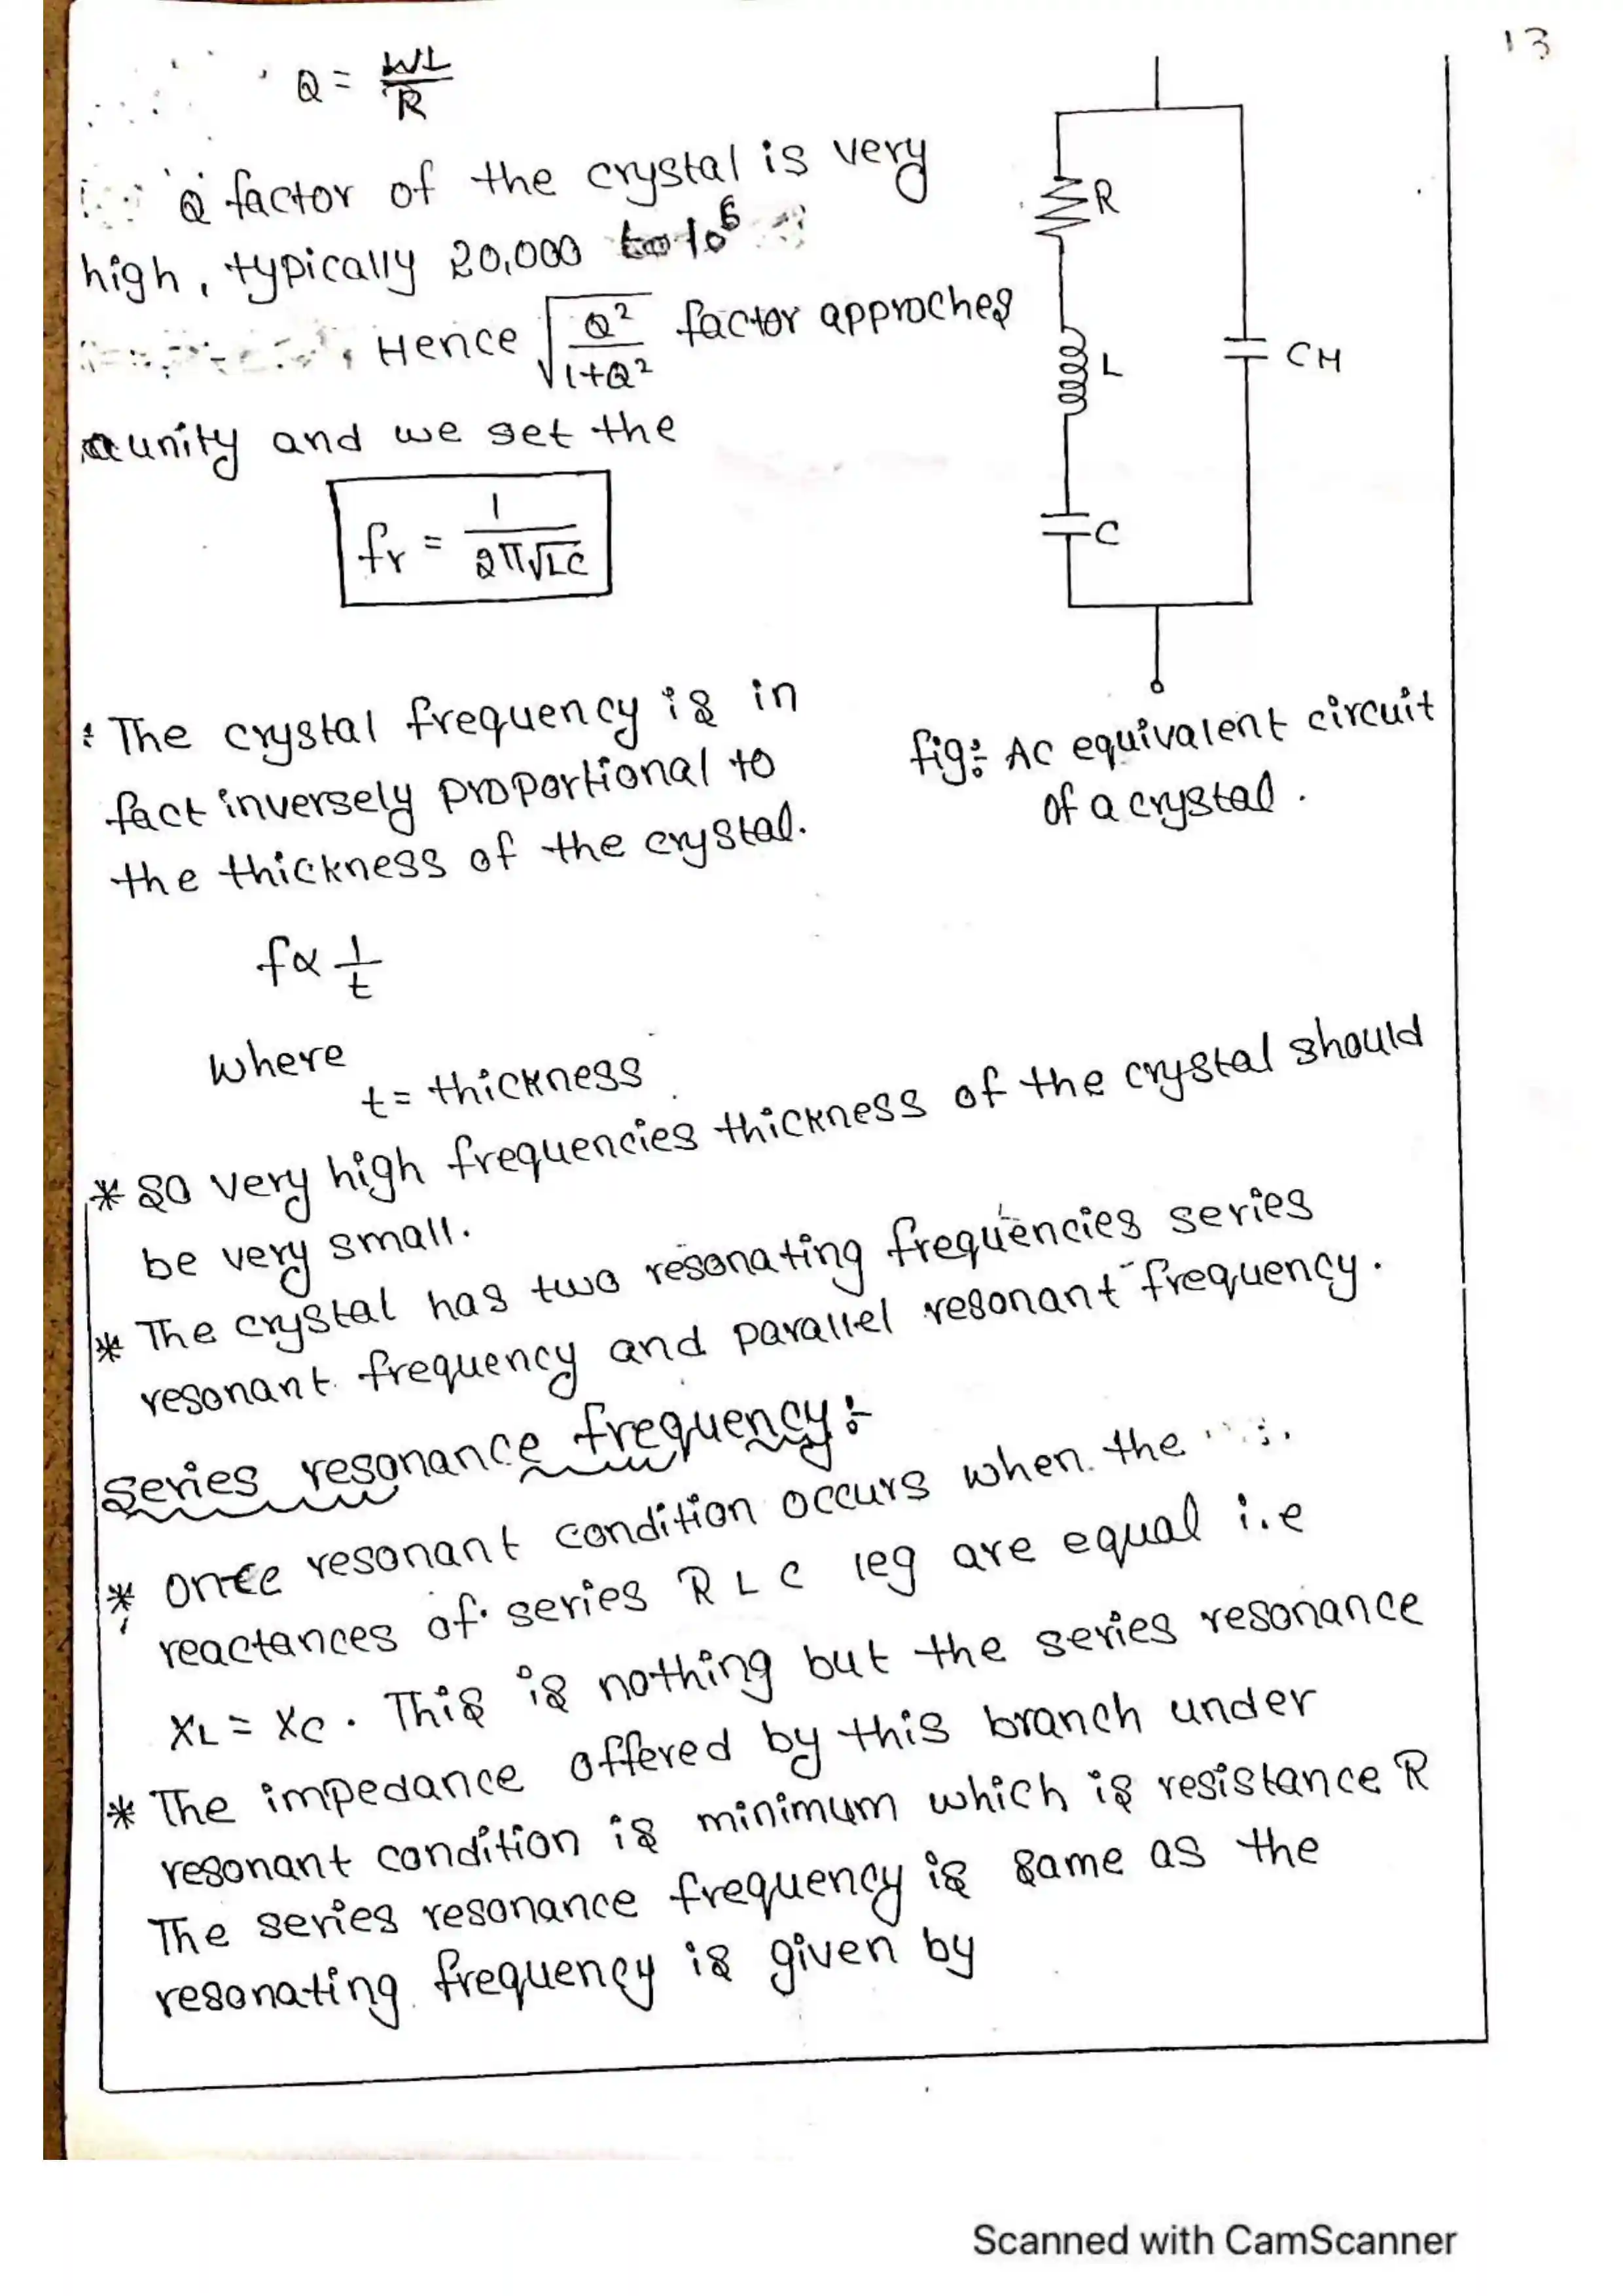 13
Q = WL/R
Q factor of the crystal is very
high, typically 20,000 to 10^6
Hence √(Q²/(1+Q²)) factor approches
unity and we get the
fr = 1/(2π√LC)
R
L
C
CM
fig: AC equivalent circuit
of a crystal.
: The crystal frequency is in
fact inversely proportional to
the thickness of the crystal.
f ∝ 1/t
where
t = thickness
* So very high frequencies thickness of the crystal should
be very small.
* The crystal has two resonating frequencies series
resonant frequency and parallel resonant frequency.
Series resonance frequency:-
* Once resonant condition occurs when the
reactances of series R L C leg are equal i.e
XL = XC. This is nothing but the series resonance
* The impedance offered by this branch under
resonant condition is minimum which is resistance R
The series resonance frequency is same as the
resonating frequency is given by
Scanned with CamScanner